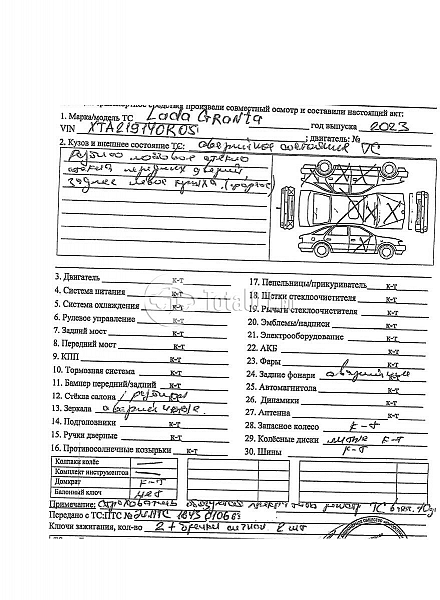 транспортное средства произвели совместный осмотр и составили настоящий акт:
1. Марка/модель ТС Lada Granta год выпуска 2023
VIN XTA219140R05 ; двигатель: №
2. Кузов и внешнее состояние ТС: аварийное состояние ТС
лобовое стекло
стекла передних дверей
заднее левое крыло
3. Двигатель к-т
4. Система питания к-т
5. Система охлаждения к-т
6. Рулевое управление к-т
7. Задний мост к-т
8. Передний мост к-т
9. КПП к-т
10. Тормозная система к-т
11. Бампер передний/задний к-т
12. Стёкла салона
13. Зеркала аварийные
14. Подголовники к-т
15. Ручки дверные к-т
16. Противосолнечные козырьки к-т
17. Пепельницы/прикуриватель к-т
18. Щетки стеклоочистителя к-т
19. Рычаги стеклоочистителя к-т
20. Эмблемы/надписи к-т
21. Электрооборудование к-т
22. АКБ к-т
23. Фары к-т
24. Задние фонари к-т
25. Автомагнитола к-т
26. Динамики к-т
27. Антенна к-т
28. Запасное колесо к-т
29. Колёсные диски литые к-т
30. Шины к-т
Колпаки колёс —
Комплект инструментов —
Домкрат к-т
Балонный ключ нет
Примечание: ТС
Передано с ТС:ПТС №
Ключи зажигания, кол-во 2 + 2 шт